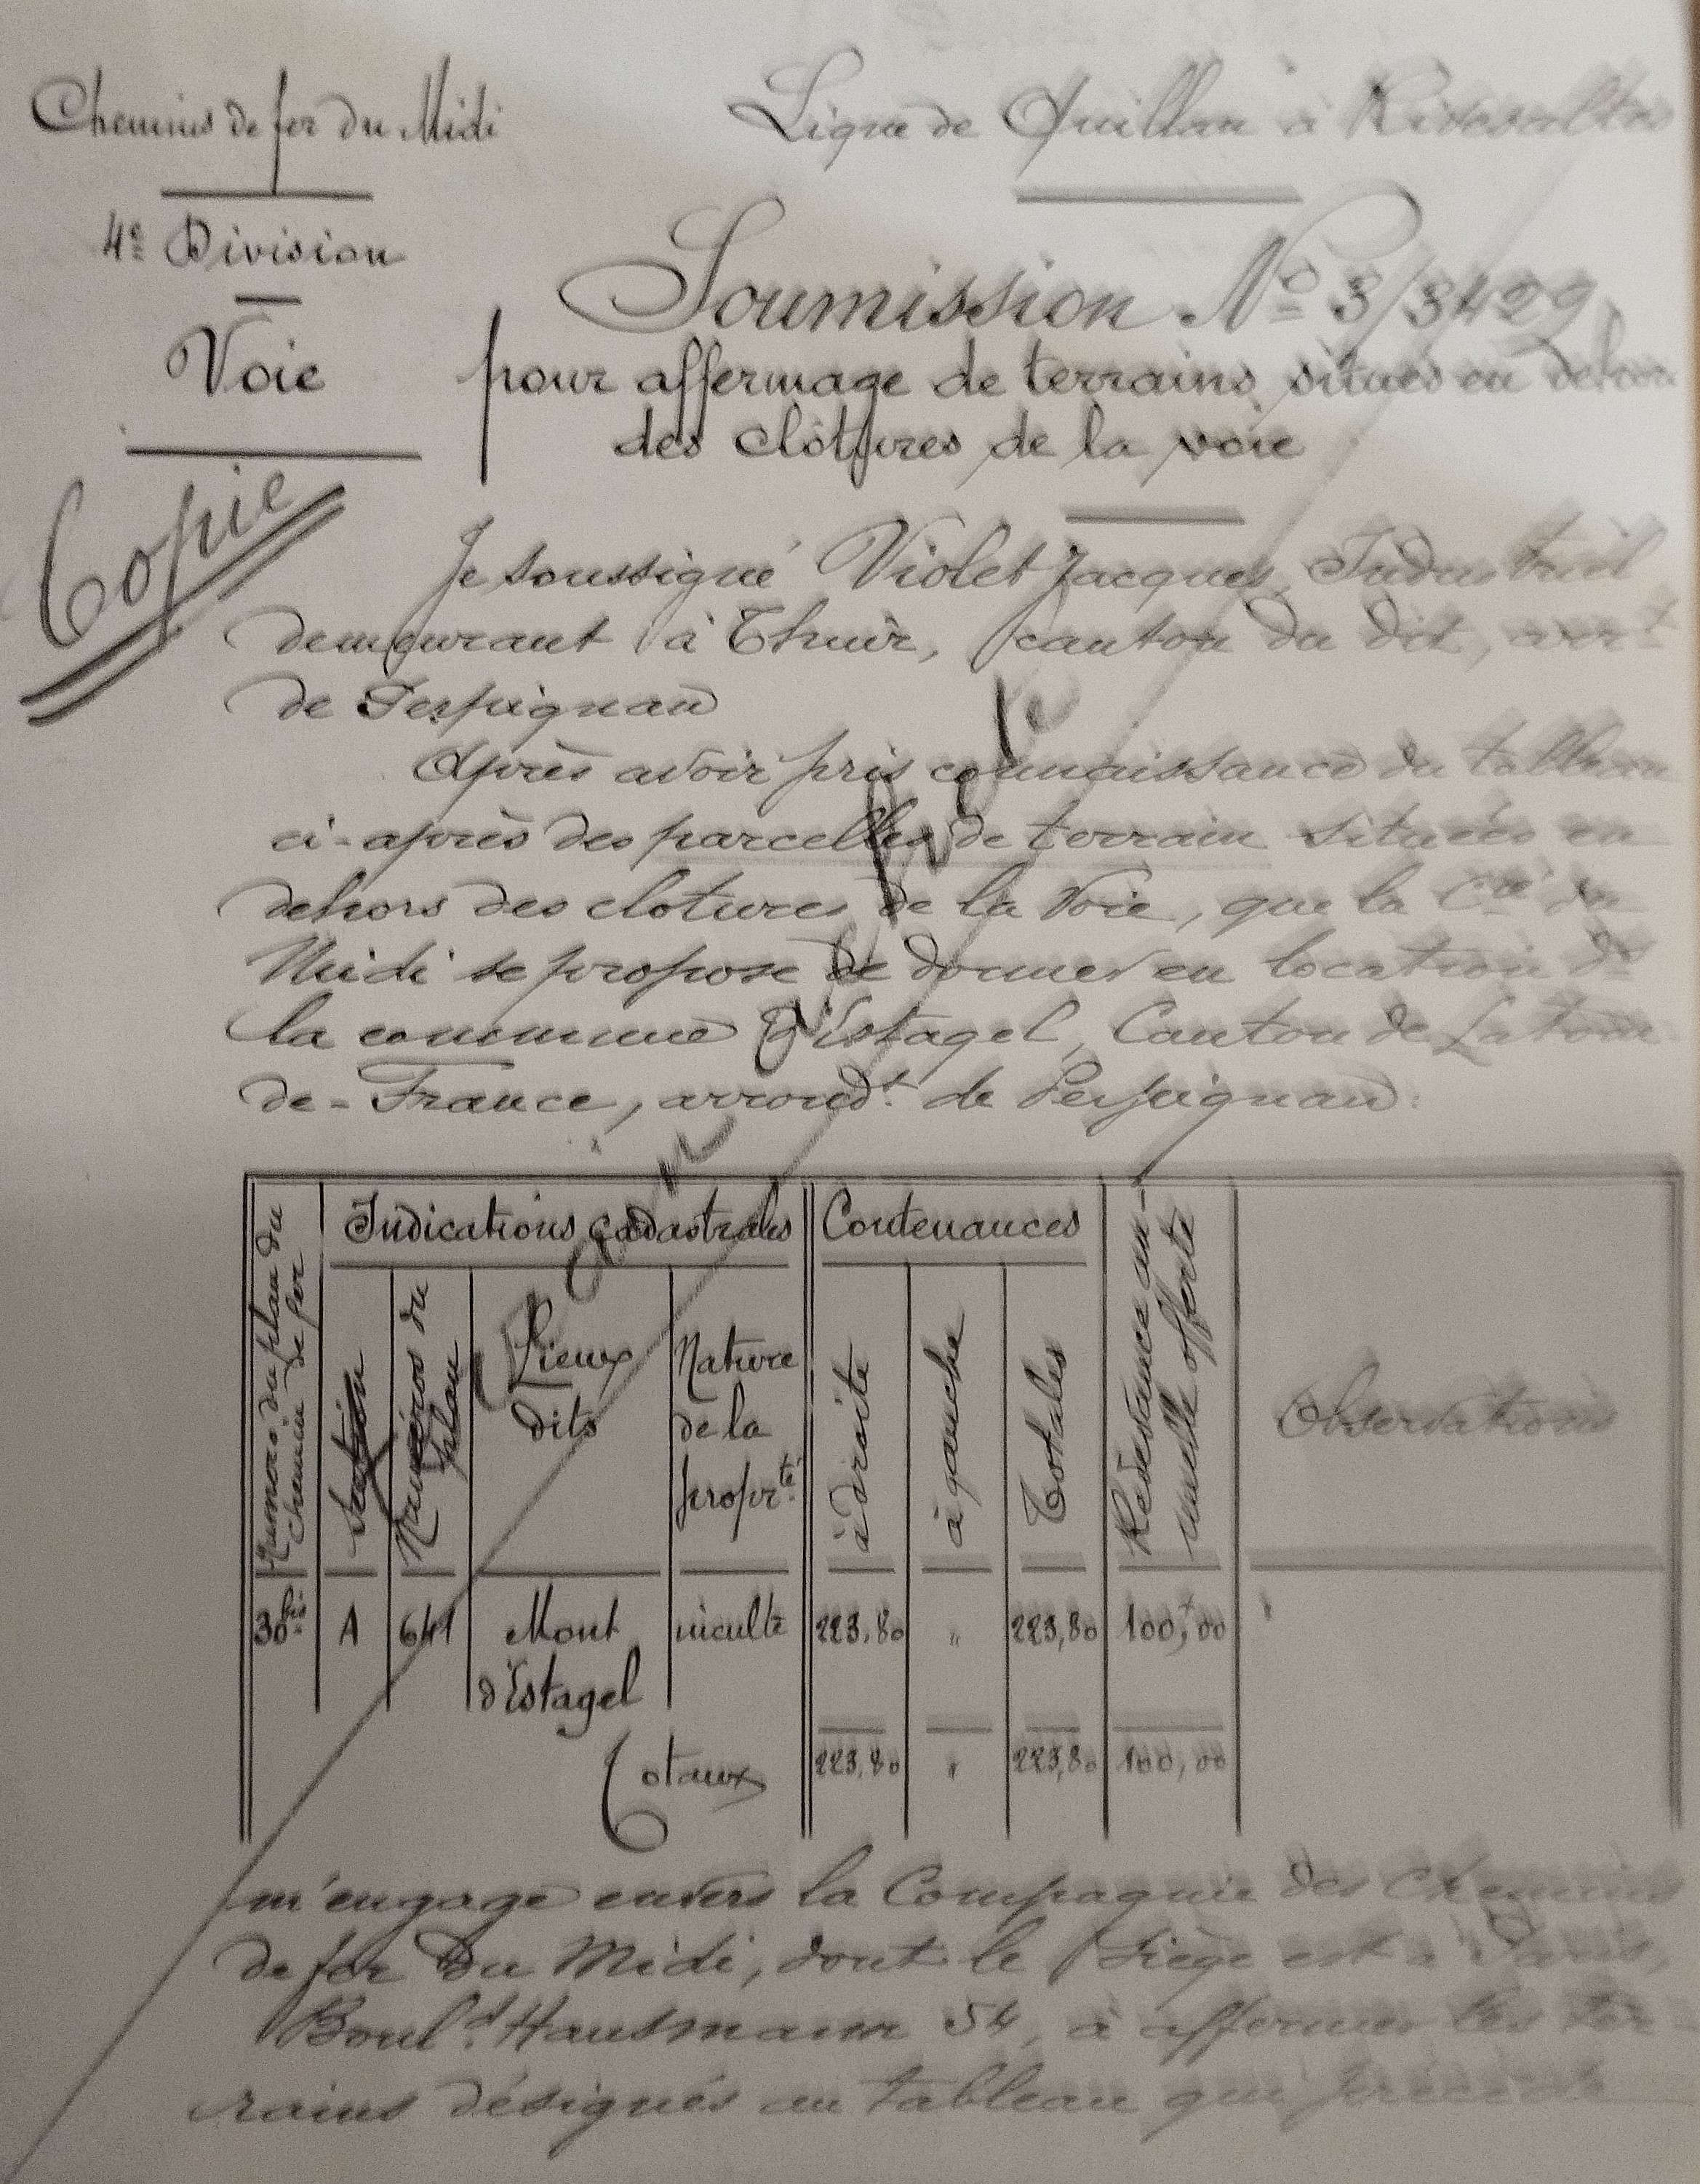 Chemins de fer du Midi
Ligne de Quillan à Rivesaltes
4e Division
Soumission No 3/3429
Voie
pour affermage de terrains situés en dehors
des clôtures de la voie
Copie
Je soussigné Violet Jacques, Industriel
demeurant à Thuir, canton du dit, arrt
de Perpignan
Après avoir pris connaissance du tableau
ci-après des parcelles de terrain situées en
dehors des clotures de la Voie, que la Cie du
Midi se propose de donner en location de
la commune d'Estagel, Canton de Latour-
de-France, arrondt de Perpignan:
Indications cadastrales Contenances
Numéro du plan du chemin de fer
Section
Numéros du plan
Lieux dits
Nature de la proprté
à droite
à gauche
Totales
Redevance annuelle offerte
Observations
30bis A 641 Mont inculte 223,80 " 223,80 100f,00
d'Estagel
Totaux 223,80 " 223,80 100,00
m'engage envers la Compagnie des Chemins
de fer du Midi, dont le Siège est à Paris,
Bould Hausmann 54, à affermer les ter-
rains désignés au tableau qui précède